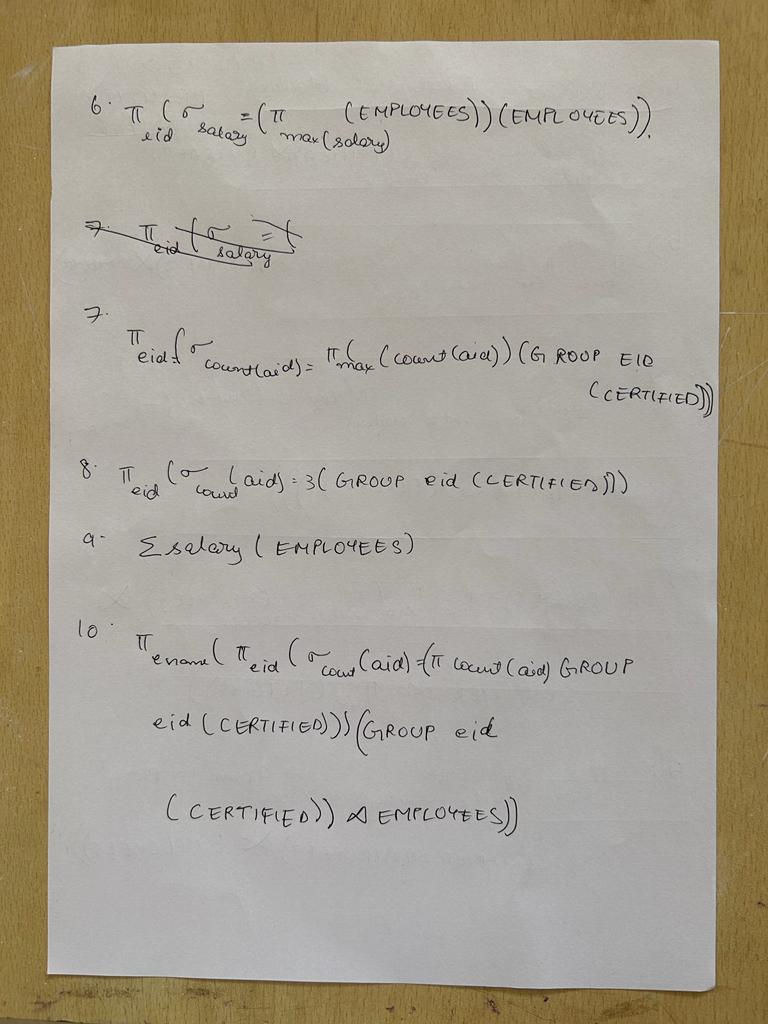 6. π eid (σ salary = (π max(salary) (EMPLOYEES)) (EMPLOYEES)).
7. π eid (σ salary = (
7.
π eid (σ count(aid) = π (max (count(aid)) (GROUP EID
(CERTIFIED)))
8. π eid (σ count (aid) = 3 (GROUP eid (CERTIFIED)))
9. Σ salary (EMPLOYEES)
10. π ename (π eid (σ count (aid) = (π count (aid) GROUP
eid (CERTIFIED))) (GROUP eid
(CERTIFIED)) ⋈ EMPLOYEES))